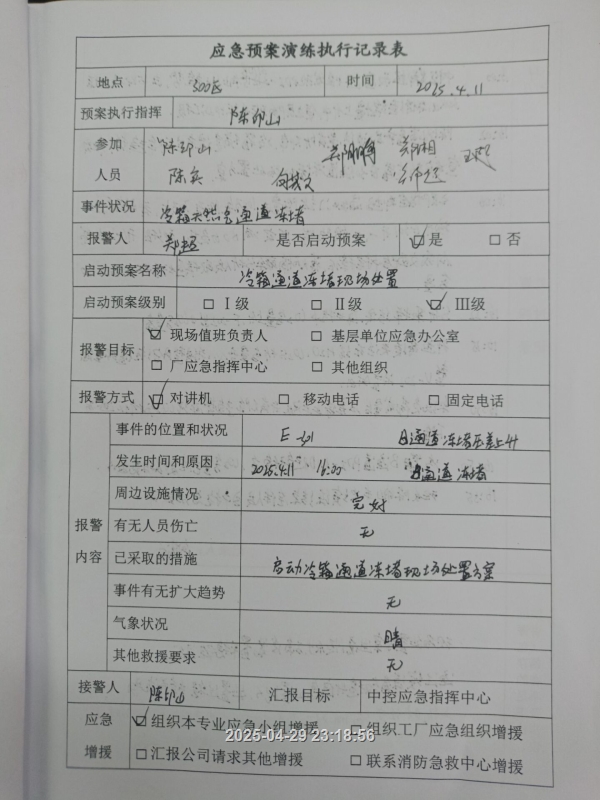 应急预案演练执行记录表
地点 300区 时间 2025.4.11
预案执行指挥 陈印山
参加 陈印山 郑相
人员 陈兵
事件状况 冷箱天然气通道冻堵
报警人 郑超 是否启动预案 ☑是 □否
启动预案名称 冷箱通道冻堵现场处置
启动预案级别 □Ⅰ级 □Ⅱ级 ☑Ⅲ级
报警目标 ☑现场值班负责人 □基层单位应急办公室
□厂应急指挥中心 □其他组织
报警方式 ☑对讲机 □移动电话 □固定电话
报警内容
事件的位置和状况 通道冻堵压差上升
发生时间和原因 2025.4.11 16:00 通道冻堵
周边设施情况 完好
有无人员伤亡 无
已采取的措施 启动冷箱通道冻堵现场处置方案
事件有无扩大趋势 无
气象状况 晴
其他救援要求 无
接警人 陈印山 汇报目标 中控应急指挥中心
应急 ☑组织本专业应急小组增援 □组织工厂应急组织增援
增援 □汇报公司请求其他增援 □联系消防急救中心增援
2025-04-29 23:18:56